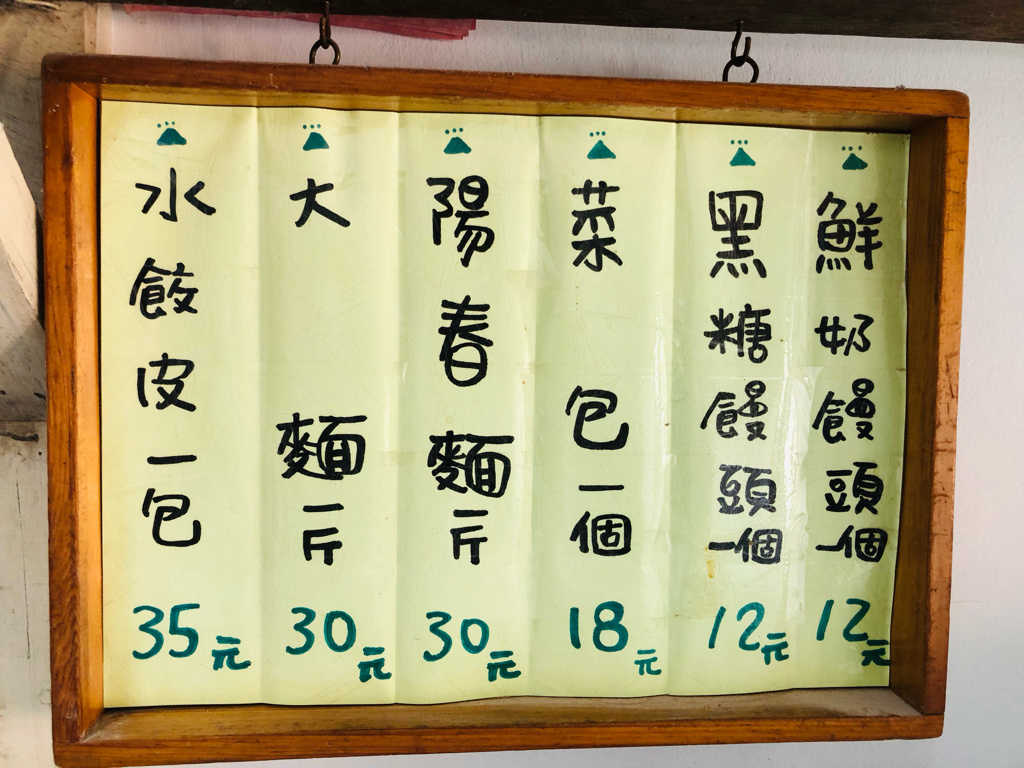 鮮奶饅頭一個12元
黑糖饅頭一個12元
菜包一個18元
陽春麵一斤30元
大麵一斤30元
水餃皮一包35元